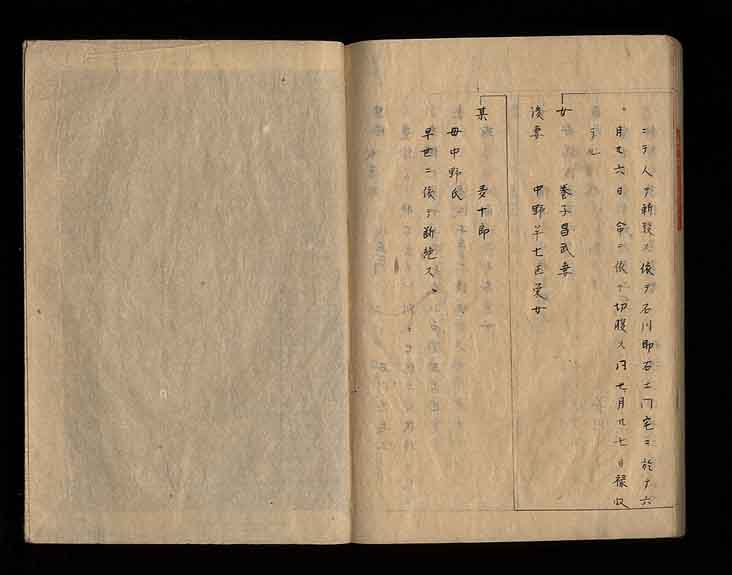 ニテ人ヲ斬殺ス依テ石川郎右エ門宅ニ於テ六
月廿六日命ニ依テ切腹ス同七月廿七日禄収
ラル
女 養子昌武妻
後妻 中野半七 女
某 麦十郎
母中野氏
早世ニ依テ断絶ス